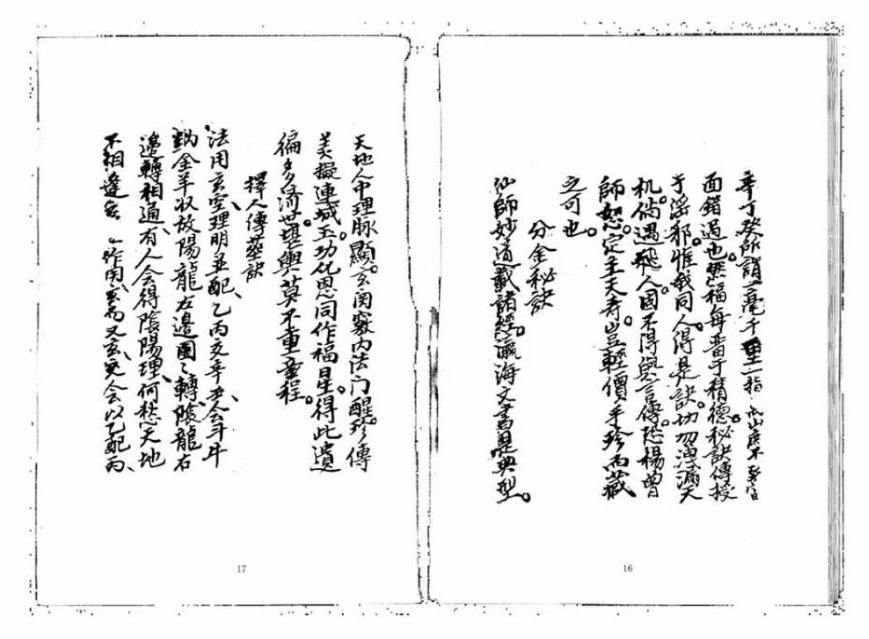 辛丁癸所謂毫千里一指
面錯過也。然福每番于積德。秘訣傳授
于滛邪。惟我同人。得是訣。切勿洩漏天
机。倘遇飛人。固不得與言傳。恐楊曾
師怨。定主夭壽。豈輕價乎。珍而藏
之可也。
分金秘訣
仙師妙道載諸經。瀛海文書是典型。
16
天地人中理脉顯。玄関竅內法门醒。珍傳
美擬連城玉。功化恩同作福星。得此遺
徧多濟世。堪輿莫不重章程。
擇人傳塟訣
法用玄空理明並配、乙丙交辛女會斗牛
納金羊収放陽龍左邉團々轉、陰龍右
邉轉相通、有人會得陰陽理、何愁天地
不相逢、作用玄而又玄、更會以乙配丙、
17